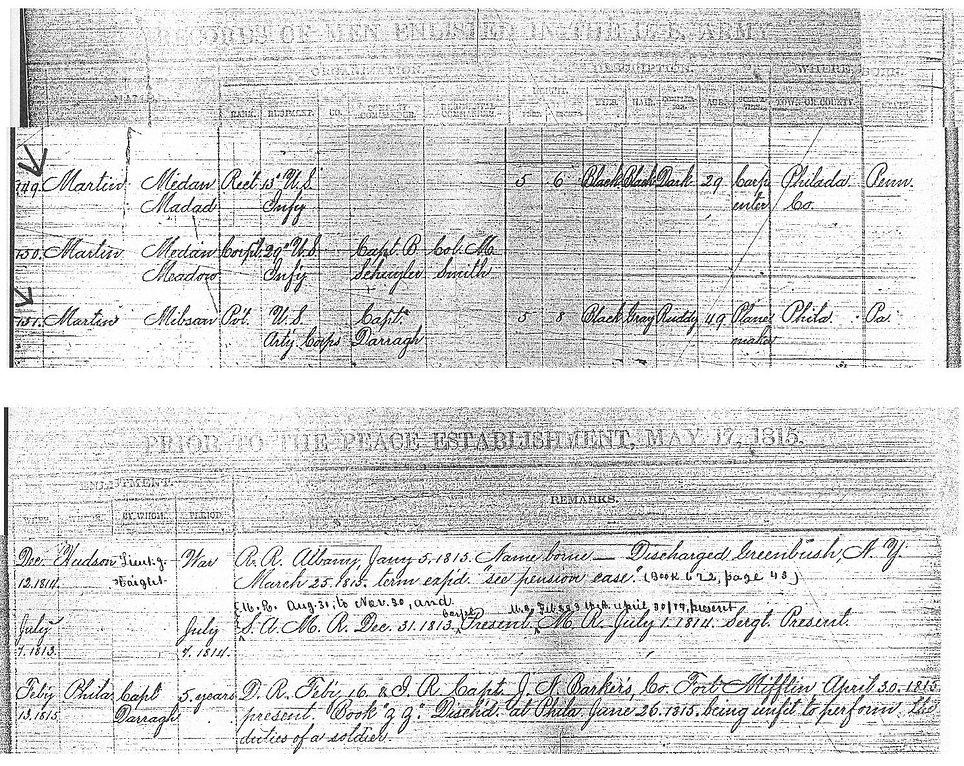 RECORDS OF MEN ENLISTED IN THE U.S. ARMY
ORGANIZATION. DESCRIPTION. WHERE BORN.
NAMES. HEIGHT.
RANK. REGIMENT. CO. COMPANY COMMANDER. REGIMENTAL COMMANDER. FEET. INCHES. EYES. HAIR. AGE. TOWN OR COUNTY. STATE.
149. Martin Medan Rect. 15" U.S. 5 6 Black Black Dark 29 Carp Philada. Penn.
Madad Infy enter Co.
150. Martin Medan Corpl. 29" U.S. Capt. B Col. M.
Meadow Infy Smith
151. Martin Mibsan Pvt. U.S. Capt. 5 8 Black Gray Ruddy 49 Plane Phila. Pa.
Arty. Corps Darragh maker
PRIOR TO THE PEACE ESTABLISHMENT, MAY 17, 1815.
ENLISTMENT.
REMARKS.
WHEN. BY WHOM. PERIOD.
Dec. Hudson Lieut. G. War R. R. Albany, Jany 5, 1815. Name borne — Discharged Greenbush, N. Y.
12, 1814. March 25, 1815, term expd. "see pension case." (Book 672, page 43)
M. R. Aug. 31, to Nov. 30, and
July July S. A. M. R. Dec. 31. 1813. Present. M. R. July 1. 1814. Sergt. Present.
7. 1813. 7. 1814.
Feby Phila Capt 5 years D. R. Feby 16. & I. R. Capt. J. N. Barker's, Co. Fort Mifflin April 30. 1815.
13. 1815. Darragh present, "Book" Disch'd. at Phila. June 26. 1815. being unfit to perform the
duties of a soldier.